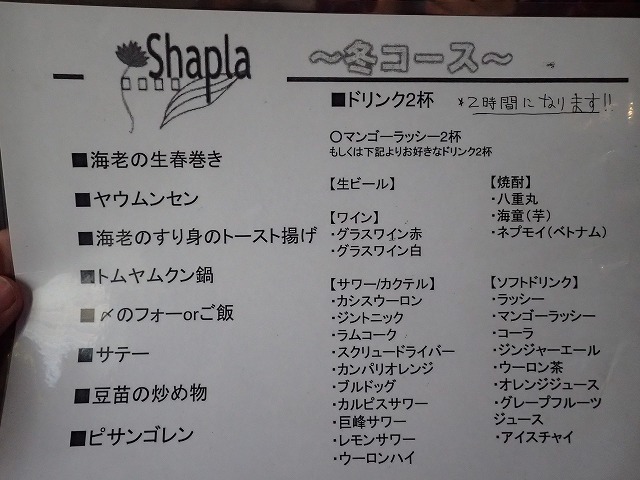 Shapla
~冬コース~
■海老の生春巻き
■ヤウムンセン
■海老のすり身のトースト揚げ
■トムヤムクン鍋
■〆のフォーorご飯
■サテー
■豆苗の炒め物
■ピサンゴレン
■ドリンク2杯 *2時間になります!!
〇マンゴーラッシー2杯
もしくは下記よりお好きなドリンク2杯
【生ビール】
【ワイン】
・グラスワイン赤
・グラスワイン白
【サワー/カクテル】
・カシスウーロン
・ジントニック
・ラムコーク
・スクリュードライバー
・カンパリオレンジ
・ブルドッグ
・カルピスサワー
・巨峰サワー
・レモンサワー
・ウーロンハイ
【焼酎】
・八重丸
・海童(芋)
・ネプモイ(ベトナム)
【ソフトドリンク】
・ラッシー
・マンゴーラッシー
・コーラ
・ジンジャーエール
・ウーロン茶
・オレンジジュース
・グレープフルーツ
ジュース
・アイスチャイ